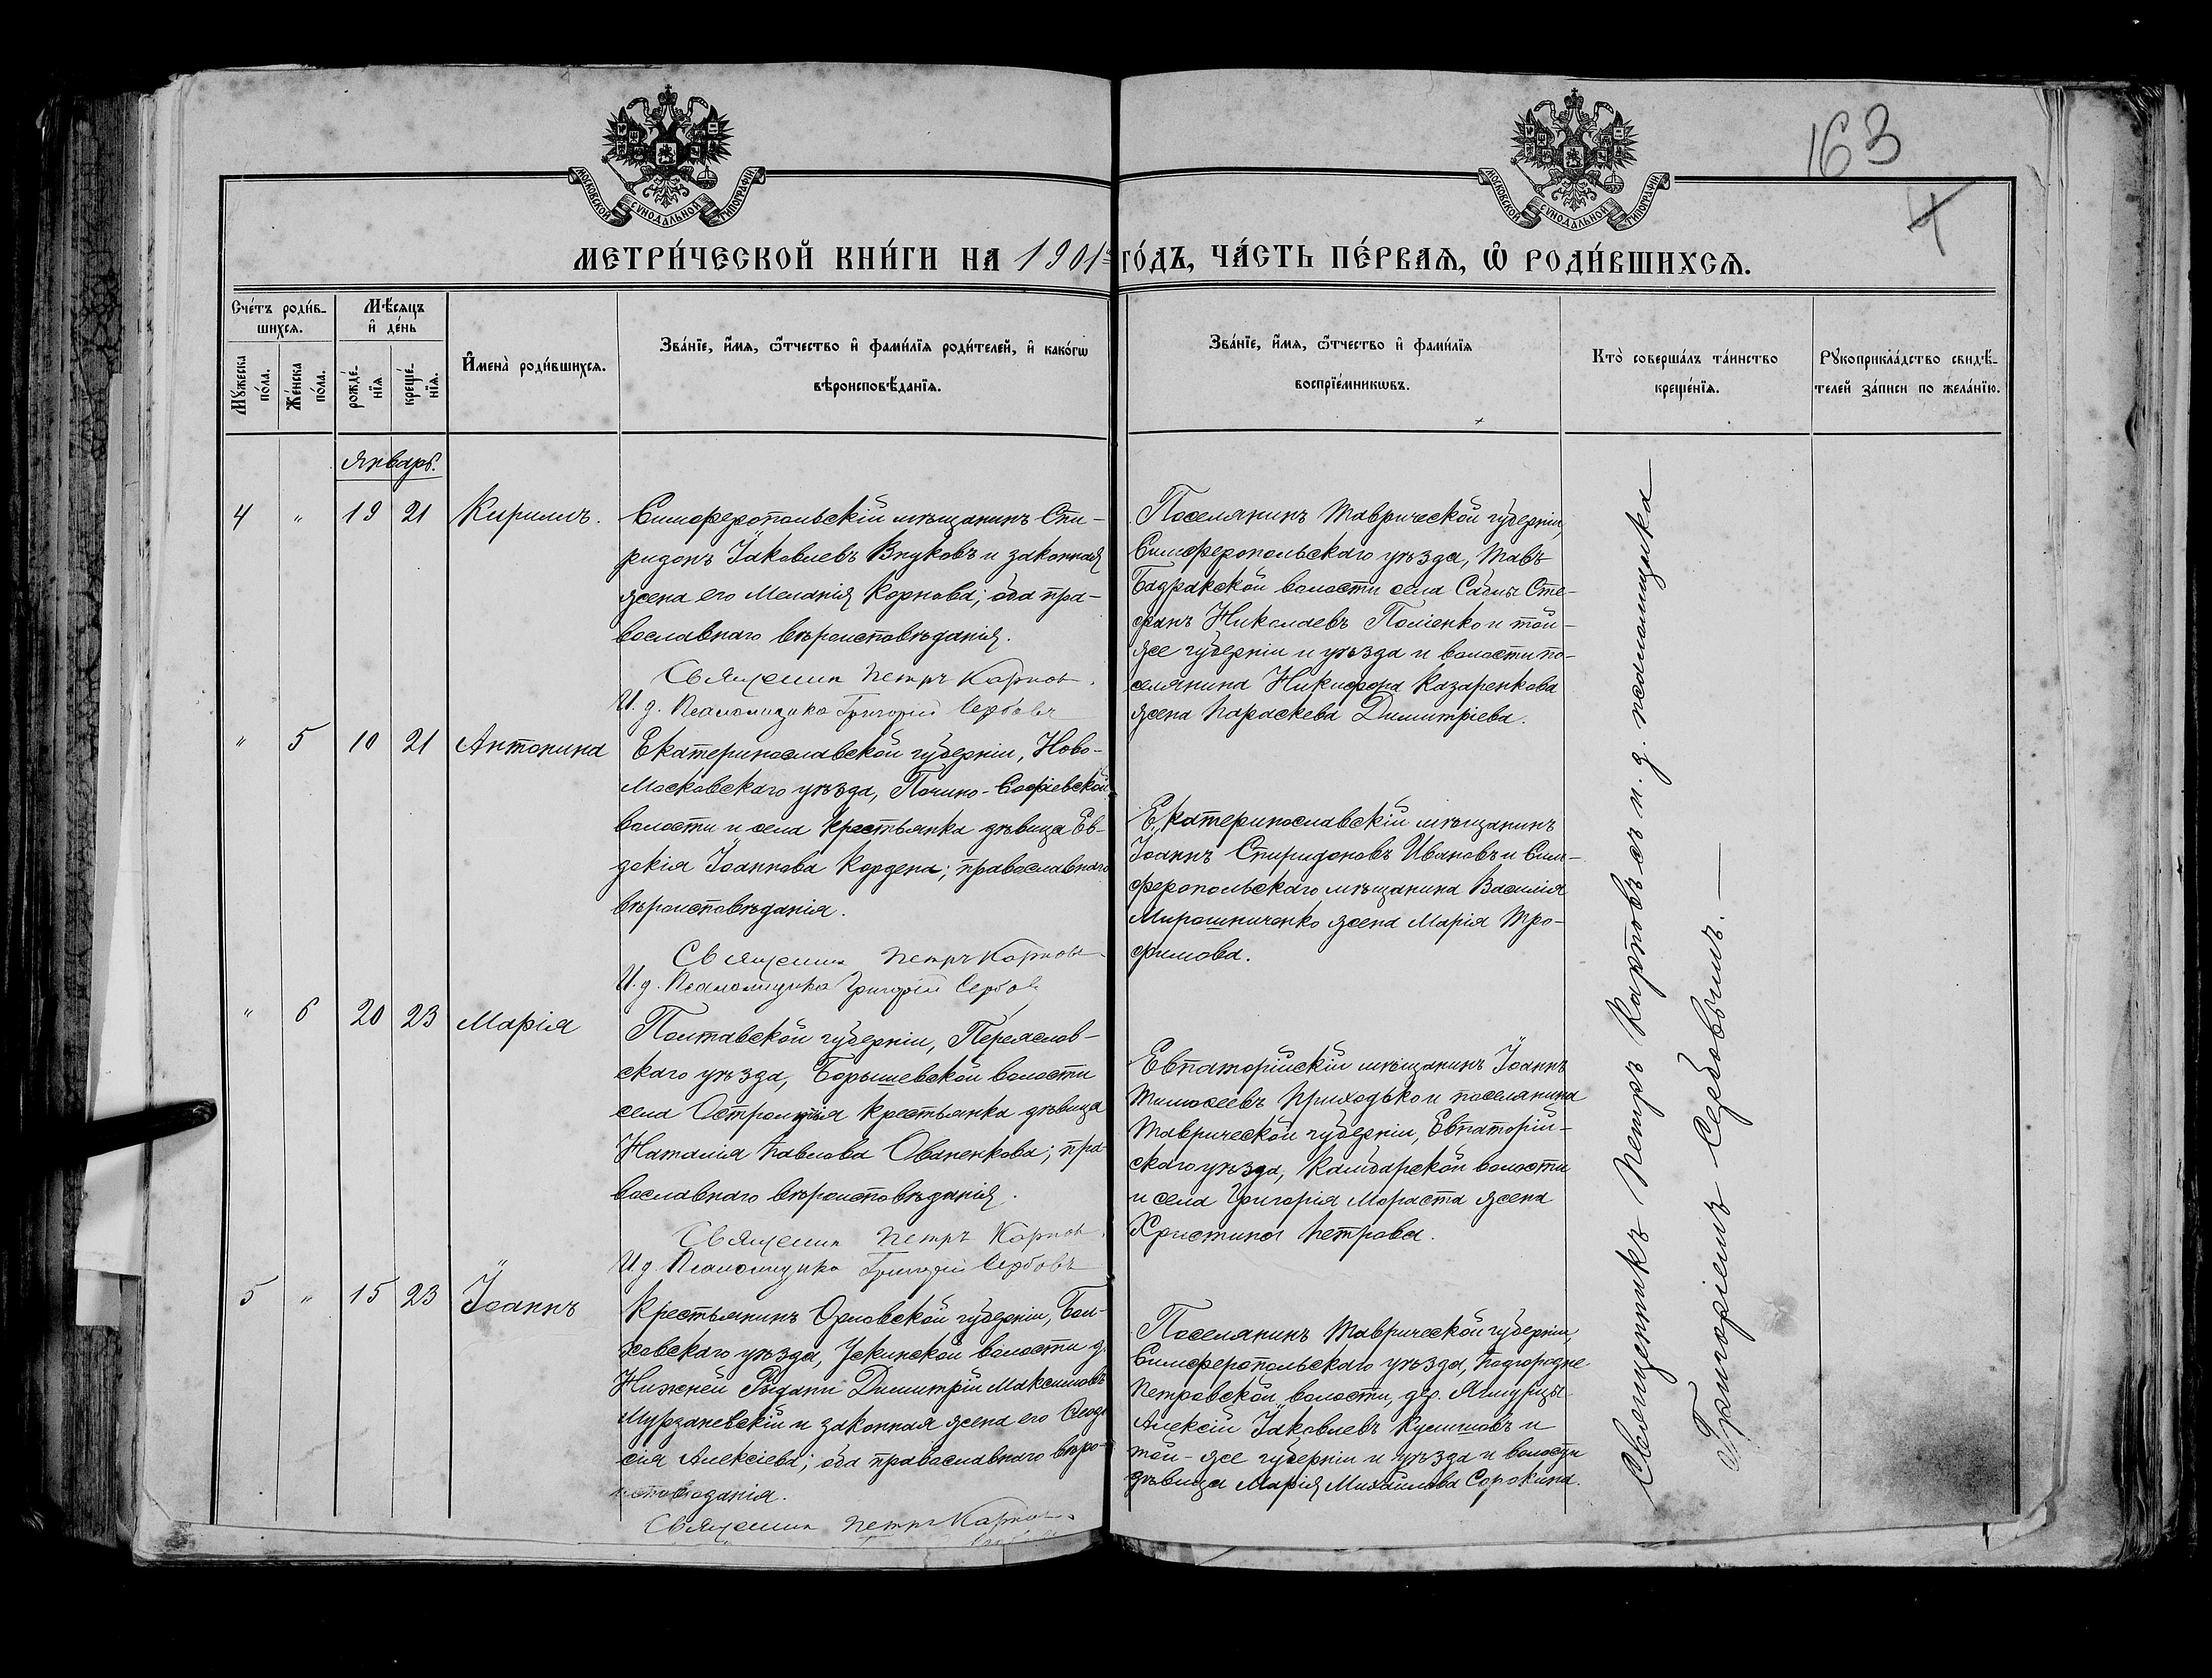 163
4
МОСКОВСКОЙ СУНОДАЛЬНОЙ ТИПОГРАФІИ
МОСКОВСКОЙ СУНОДАЛЬНОЙ ТИПОГРАФІИ
МЕТРИ́ЧЕСКОЙ КНИ́ГИ НА 1901й ГО́ДЪ, ЧА́СТЬ ПЕ́РВАѦ, Ѽ РОДИ́ВШИХСѦ.
Сче́тъ роди́в-
шихсѧ.
Мꙋжеска по́ла.
Же́нска по́ла.
Мѣ́сѧцъ
и҆ де́нь
рожде́-
нїѧ.
креще́-
нїѧ.
И҆мена̀ роди́вшихсѧ.
Зва́нїе, и҆́мѧ, ѻ҆́тчество и҆ фами́лїѧ роди́телей, и҆ како́гѡ
вѣроисповѣ́данїѧ.
Зва́нїе, и҆́мѧ, ѻ҆́тчество и҆ фами́лїѧ
воспрїе́мникѡвъ.
Кто̀ соверша́лъ та́инство
креще́нїѧ.
Рꙋкоприкла́дство свидѣ́-
телей за́писи по жела́нїю.
Январь.
4 " 19 21 Кириллъ.
Симферопольскій мѣщанинъ Спи-
ридонъ Іаковлевъ Внуковъ и законная
жена его Меланія Карпова; оба пра-
вославнаго вѣроисповѣданія.
Священник Петръ Карпов.
И. д. Псаломщика Григорій Сербовъ
Поселянинъ Таврической губерніи,
Симферопольскаго уѣзда, Тавъ-
Бадракской волости села Саблы Сте-
фанъ Николаевъ Поліенко и той-
же губерніи и уѣзда и волости по-
селянина Никифора Казаренкова
жена Параскева Димитріева.
" 5 10 21 Антонина
Екатеринославской губерніи, Ново-
Московскаго уѣзда, Почино-Софіевской
волости и села крестьянка дѣвица Ев-
докія Іоаннова Кордена; православнаго
вѣроисповѣданія.
Священник Петръ Карпов.
И. д. Псаломщика Григорій Сербов
Екатеринославскій мѣщанинъ
Іоаннъ Спиридоновъ Ивановъ и Сим-
феропольскаго мѣщанина Василія
Мирошниченко жена Марія Тро-
фимова.
" 6 20 23 Марія
Полтавской губерніи, Переяслов-
скаго уѣзда, Борышевской волости
села крестьянка дѣвица
Наталія Павлова Ованенкова; пра-
вославнаго вѣроисповѣданія.
Священник Петръ Карпов.
И. д. Псаломщика Григорій Сербовъ
Евпаторійскій мѣщанинъ Іоаннъ
Тимофеевъ Приходько и поселянина
Таврической губерніи, Евпаторій-
скаго уѣзда, Камбарской волости
и села Григорія Мараста жена
Христина Петрова.
5 " 15 23 Іоаннъ
Крестьянинъ Орловской губерніи, Бол-
ховскаго уѣзда, волости д.
Нижней Димитрій Максимовъ
Мурзаневскій и законная жена его Ѳеодо-
сія Алексіева; оба православнаго вѣро-
исповѣданія.
Священник Петръ Карпов.
Поселянинъ Таврической губерніи,
Симферопольскаго уѣзда, Подгородне
Петровской волости, дер.
Алексій Іаковлевъ и
той-же губерніи и уѣзда и волости
дѣвица Марія Михайлова Сорокина.
Священникъ Петръ Карповъ съ и. д. псаломщика
Григоріемъ Сербовымъ.—